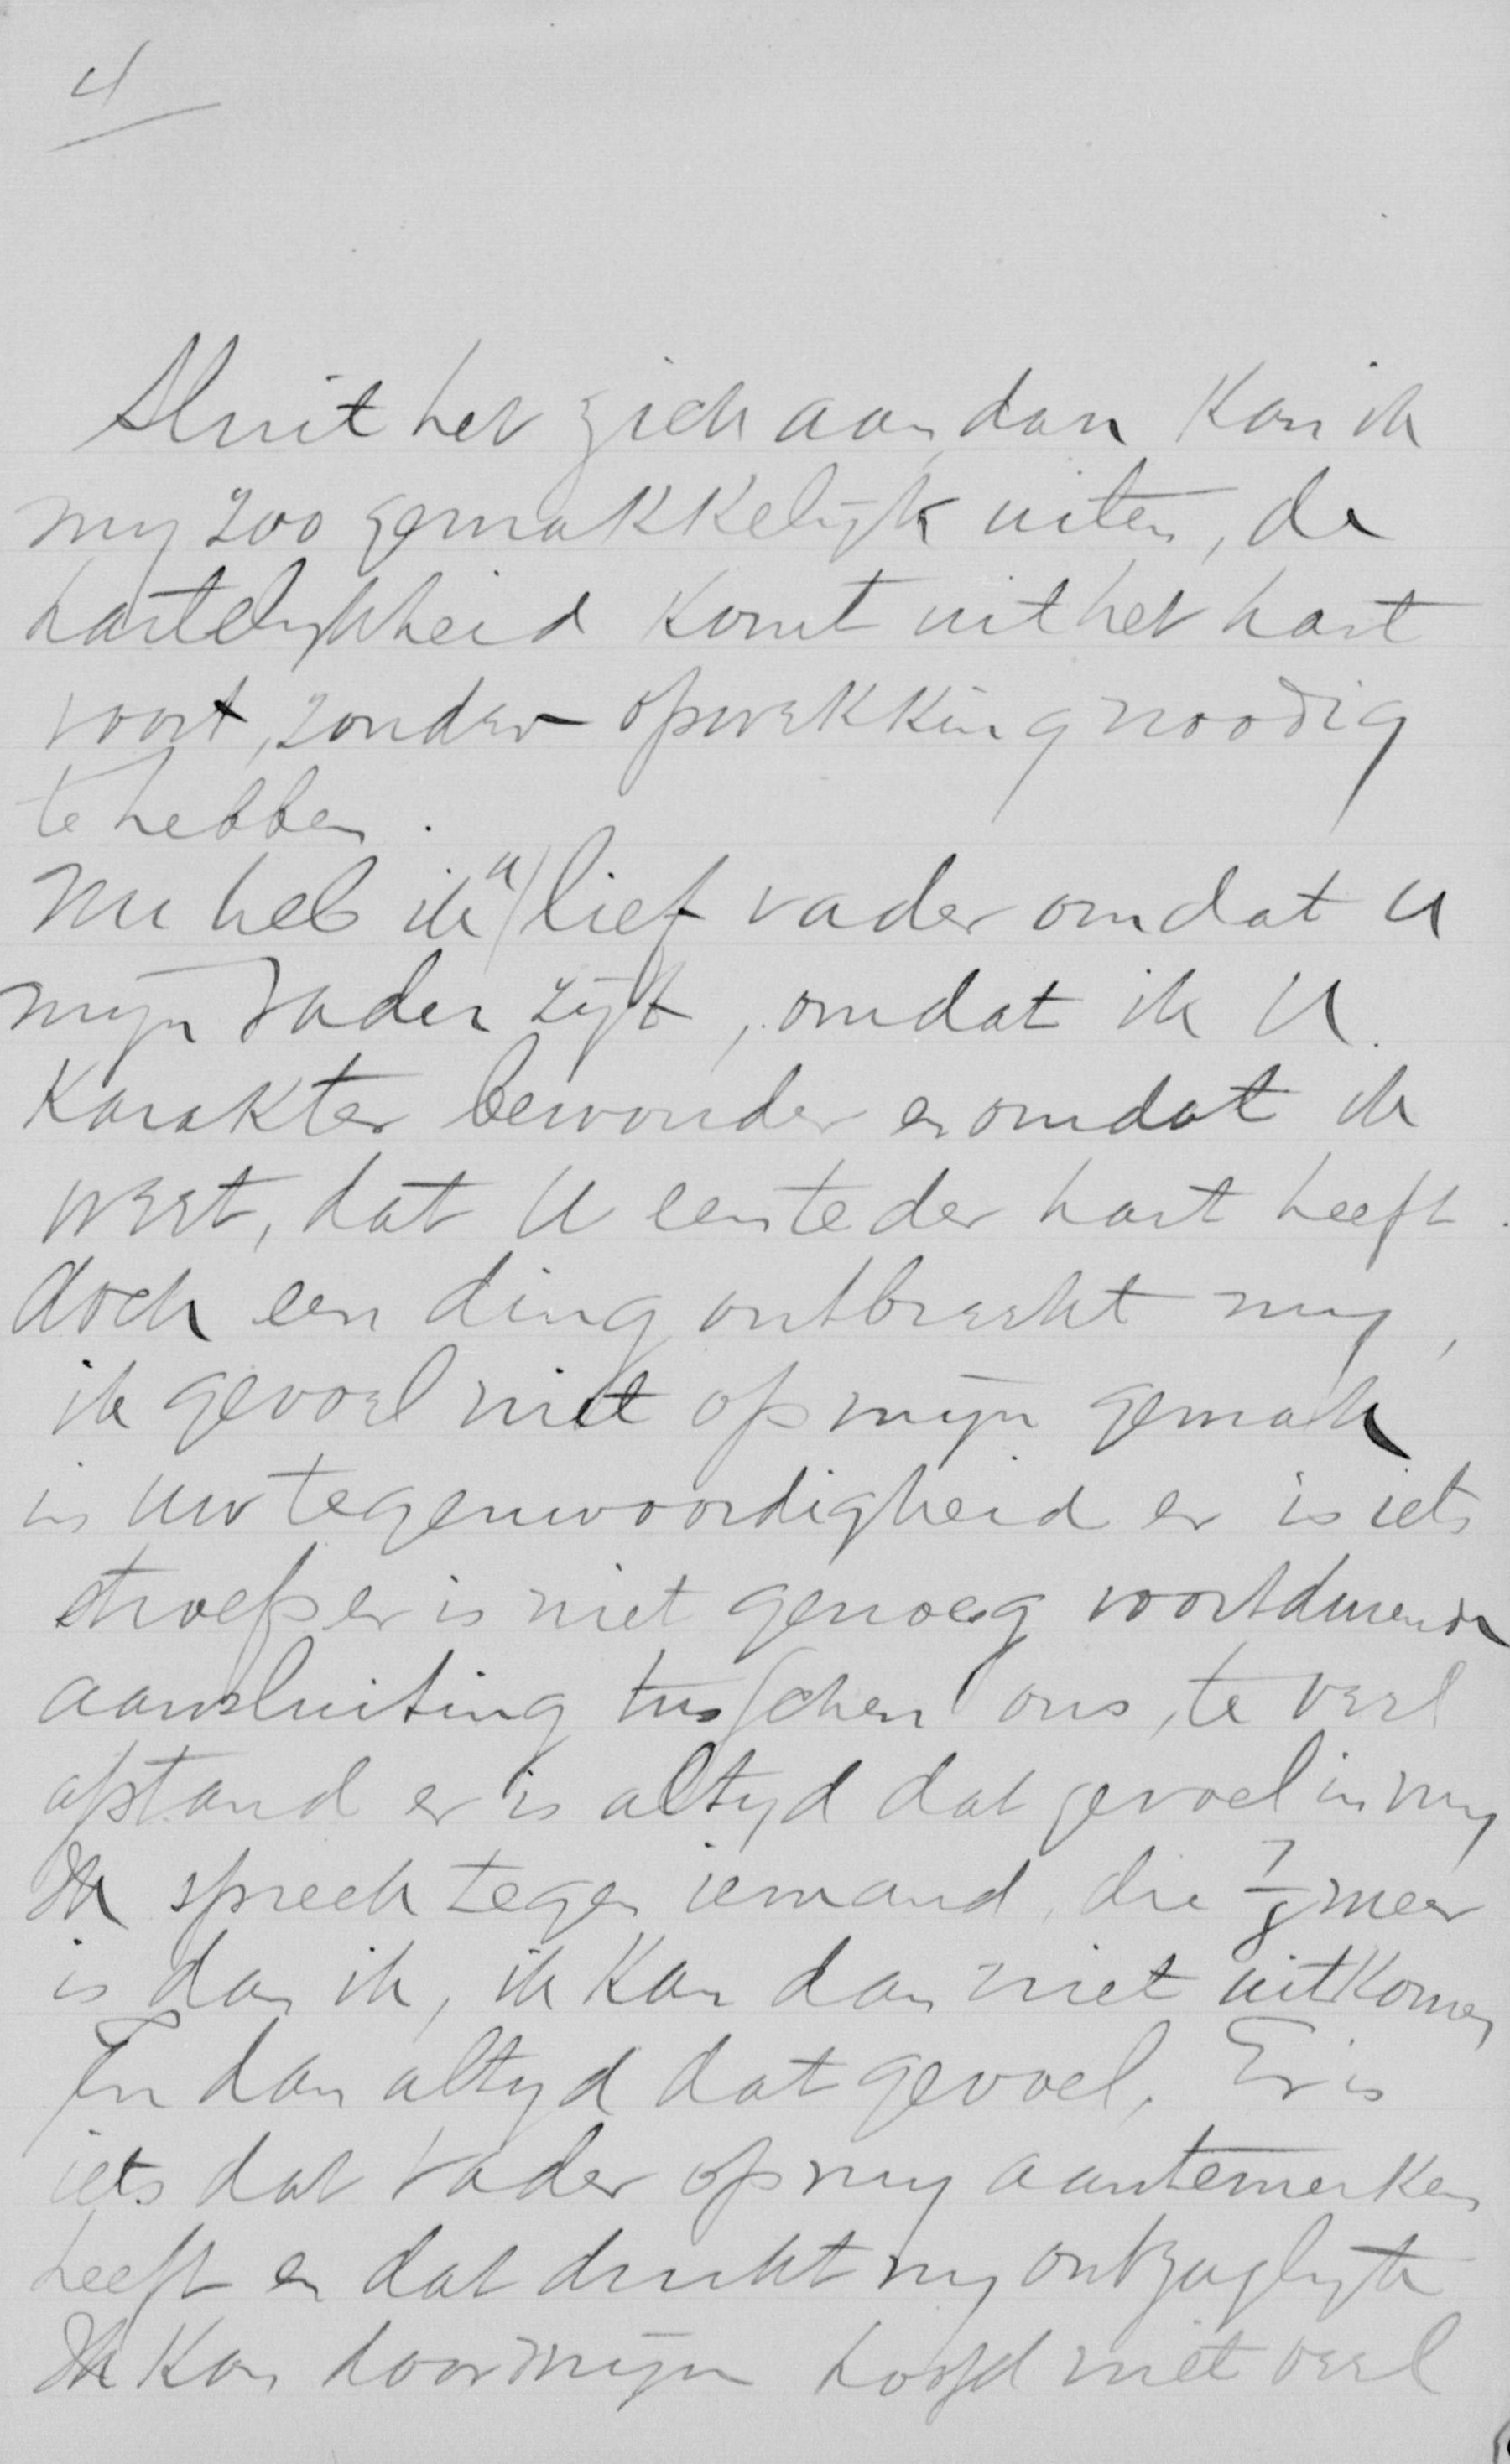 4
Sluit het zich aan, dan kan ik
my zoo gemakkelijk uiten, de
hartelykheid komt uit het hart
voort, zonder opwekking noodig
te hebben.
Nu heb ik u lief vader omdat U
mijn Vader zijt, omdat ik U
karakter bewonder en omdat ik
weet, dat U een teder hart heeft.
doch een ding ontbreekt my,
ik gevoel niet op mijn gemak
in uw tegenwoordigheid er is iets
stroefs er is niet genoeg voortdurende
aansluiting tusschen ons, te veel
afstand er is altyd dat gevoel in my
Ik spreek tegen iemand, die 7/8 meer
is dan ik, ik kan dan niet uitkomen
En dan altyd dat gevoel, Er is
iets dat Vader op my aantemerken
heeft en dat drukt my ontzaglyk
Ik kan door mijn hoofd niet veel